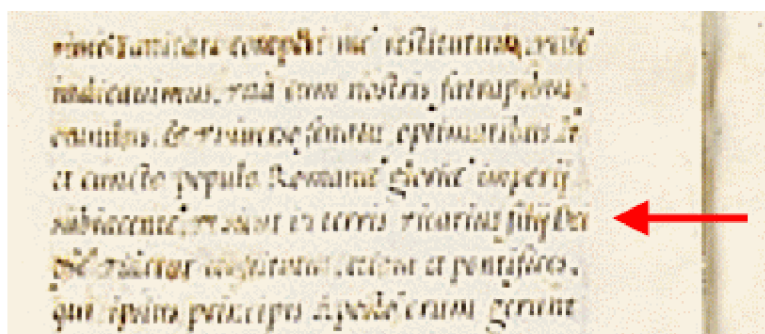 sanitati comperi me restitutum, utile
iudicauimus, vna cum nostris satrapibus
omnibus, & vniuerso senatu, optimatibus
et cuncto populo Romanae gloriae imperij
subiacente, vt sicut in terris vicarius filij Dei
videtur constitutus, etiam et pontifices,
qui ipsius principis gerunt